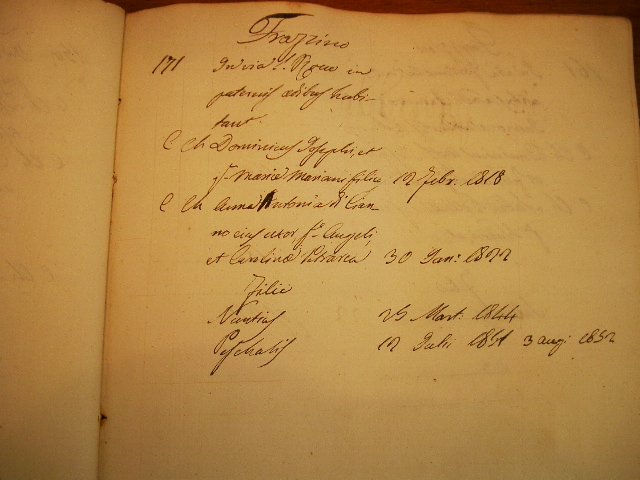 Frazzino
171 In via S. Rocco in
paternis ædibus habi-
tant.
C Ch Dominicus Josephi, et
Mariæ Mariani filius 12 Febr. 1818
C Ch Anna Antonia di Cian
no ejus uxor, fª Angeli,
et Carolinæ Petrarca 30 Jan: 1822
Filii
Nuntius 25 Mart. 1844
Paschalis 12 Julii 1851 3 aug: 1852